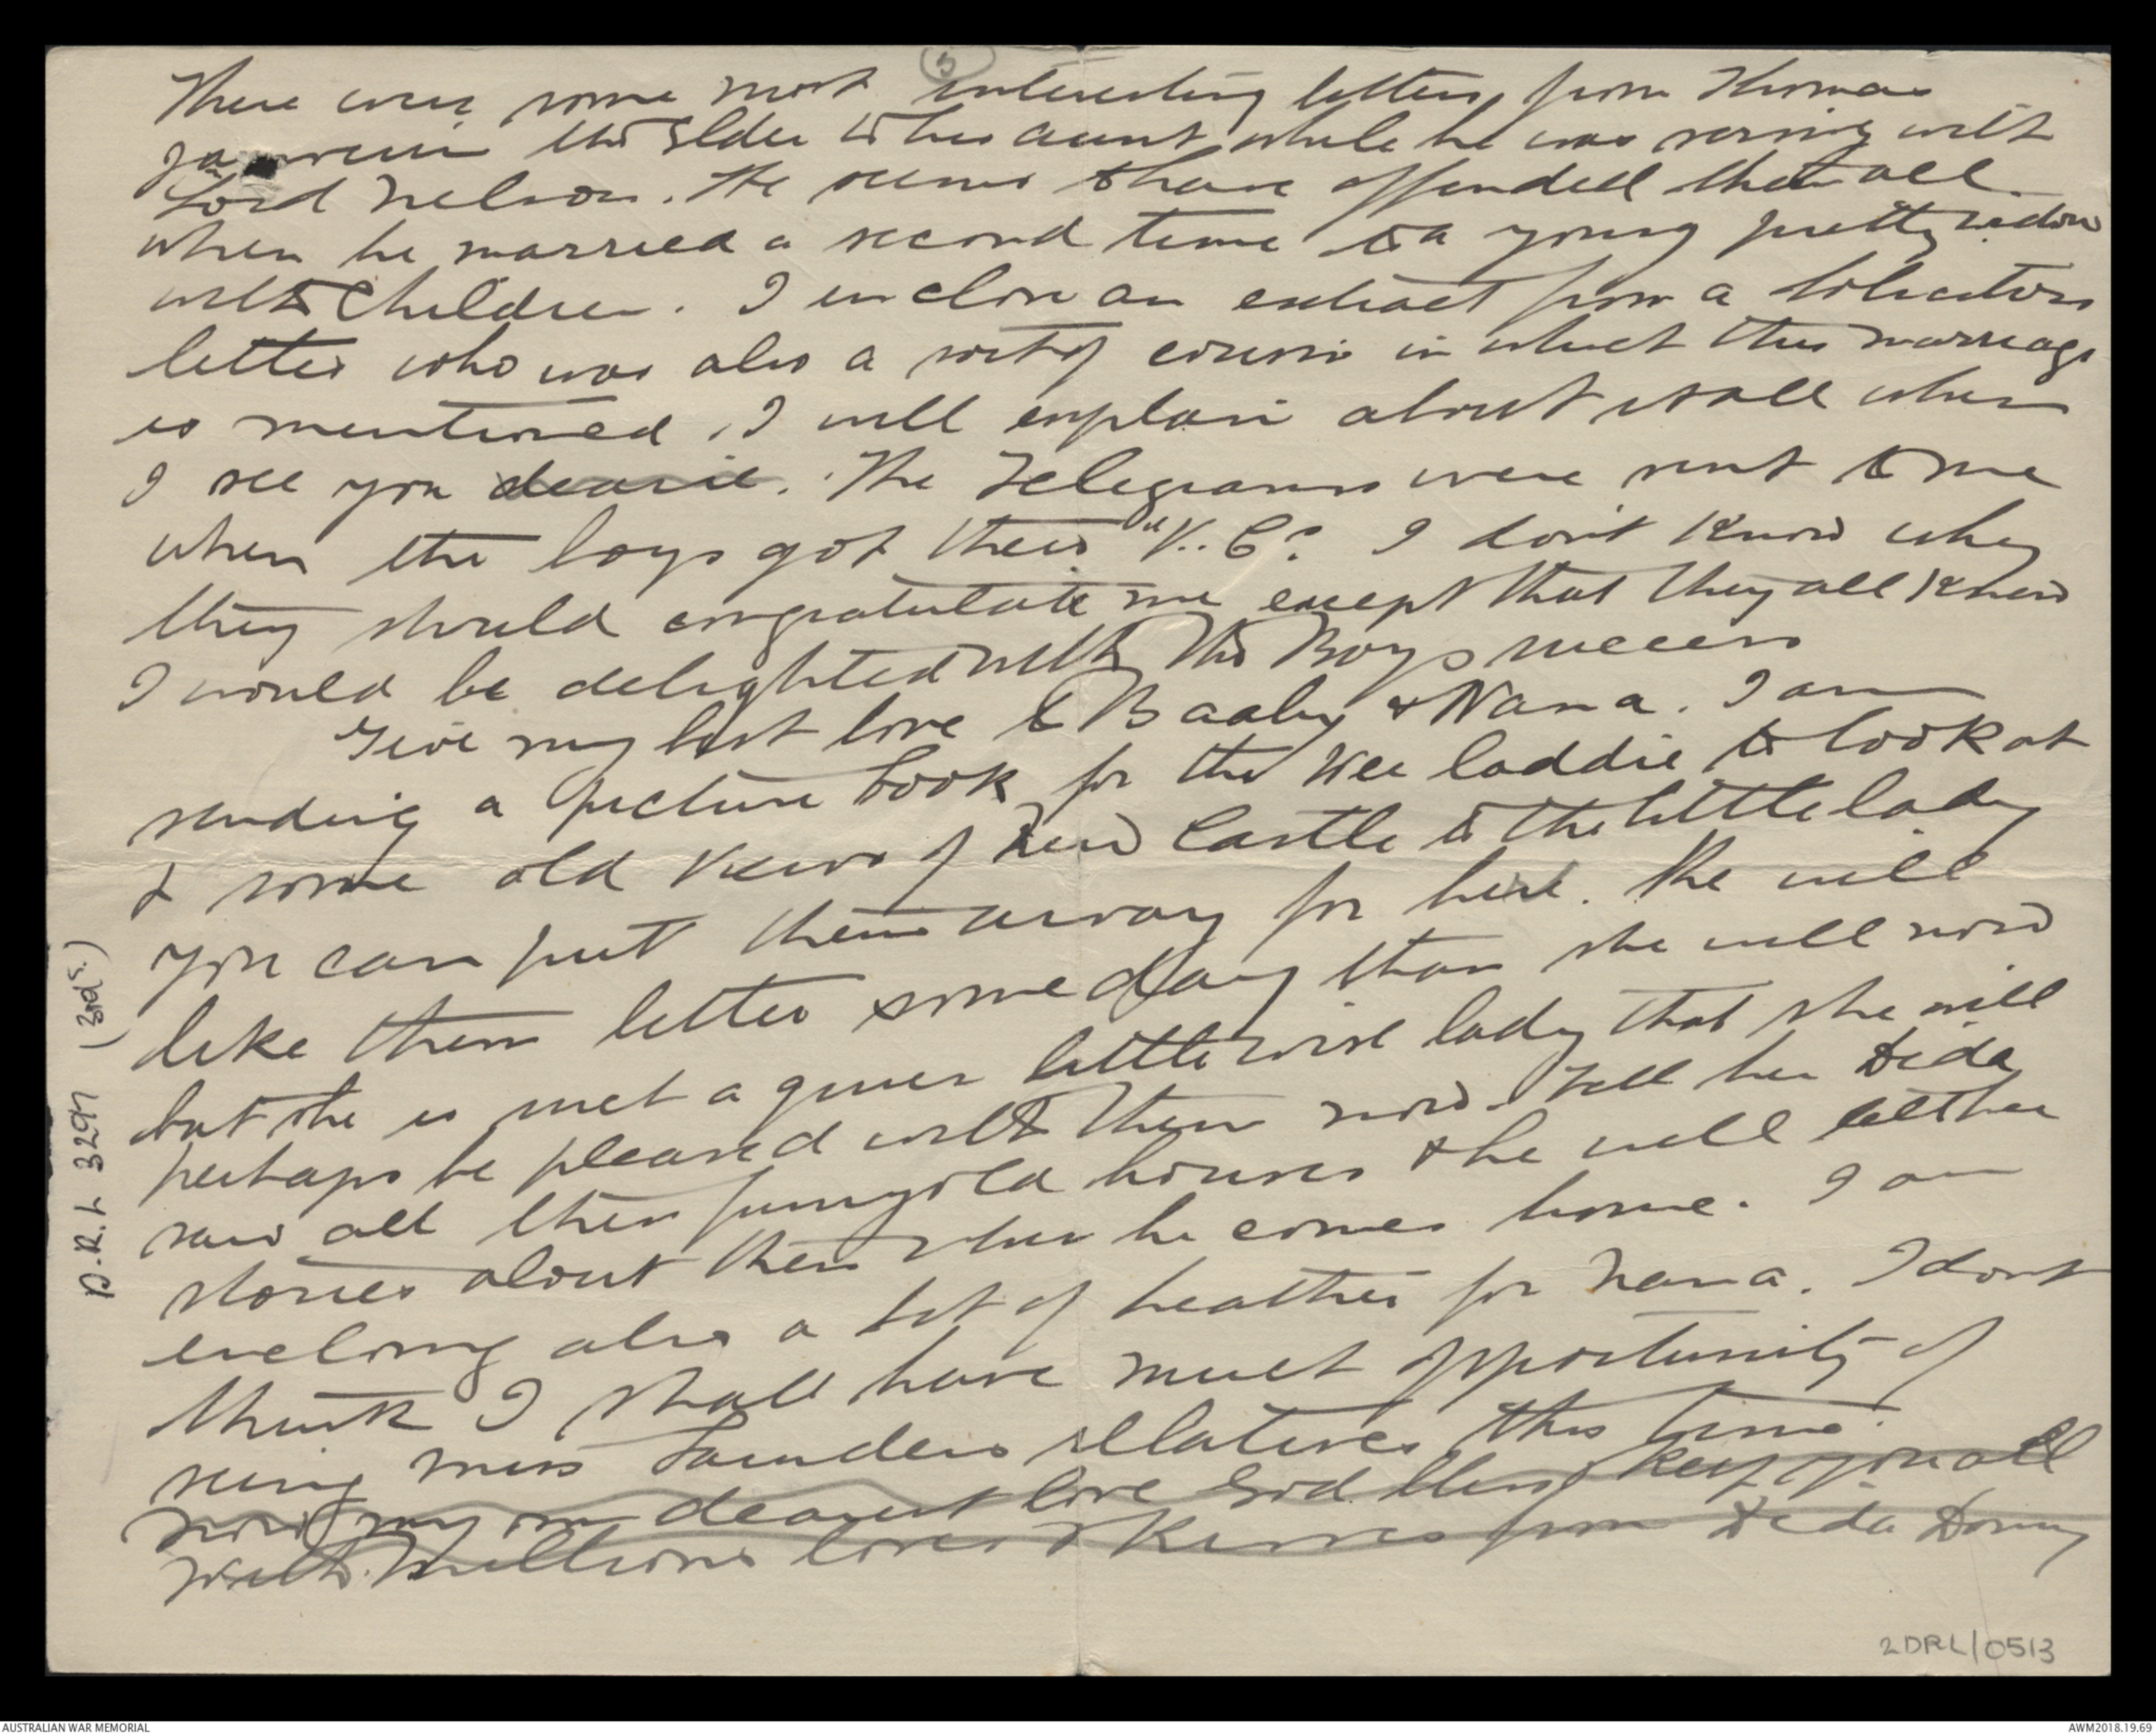 3
There were some most interesting letters from Thomas
the Elder to his aunt while he was serving with
Lord Nelson. He seems to have offended them all
when he married a second time to a young pretty widow
with children. I enclose an extract from a Solicitors
letter who was also a sort of cousin in which this marriage
is mentioned. I will explain about it all when
I see you dearie. The Telegrams were sent to me
when the boys got their "V.C." I dont know why
they should congratulate me except that they all knew
I would be delighted with the Boys success
Give my best love to Baaby & Nana. I am
sending a picture book for the wee laddie to look at
& some old views of New Castle to the little lady
you can put them away for her. She will
like them better some day than she will now
but she is such a queer little wise lady that she will
perhaps be pleased with them now. Tell her Dida
saw all these funny old houses & he will tell her
stories about them when he comes home. I am
enclosing also a bit of heather for Nana. I dont
think I shall have much opportunity of
seeing Miss Saunders relatives this time.
Now my own dearest love God bless & keep you all
with millions loves & kisses from Dida Donny
D.R.L 3297 (3rd S.)
2DRL/0513
AUSTRALIAN WAR MEMORIAL
AWM2018.19.69